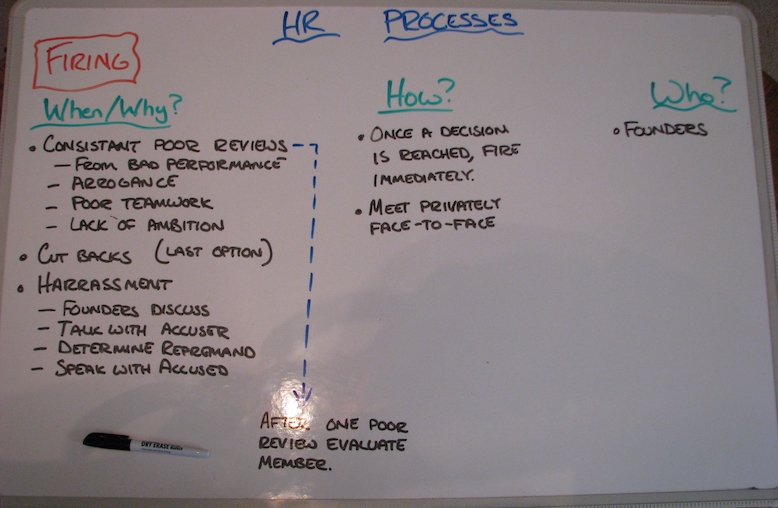 HR PROCESSES
FIRING
When/Why?
• CONSISTANT POOR REVIEWS
– FROM BAD PERFORMANCE
– ARROGANCE
– POOR TEAMWORK
– LACK OF AMBITION
• CUT BACKS (LAST OPTION)
• HARRASSMENT
– FOUNDERS DISCUSS
– TALK WITH ACCUSER
– DETERMINE REPREMAND
– SPEAK WITH ACCUSED
AFTER ONE POOR
REVIEW EVALUATE
MEMBER.
How?
• ONCE A DECISION
IS REACHED, FIRE
IMMEDIATELY.
• MEET PRIVATELY
FACE-TO-FACE
Who?
• FOUNDERS
DRY ERASE